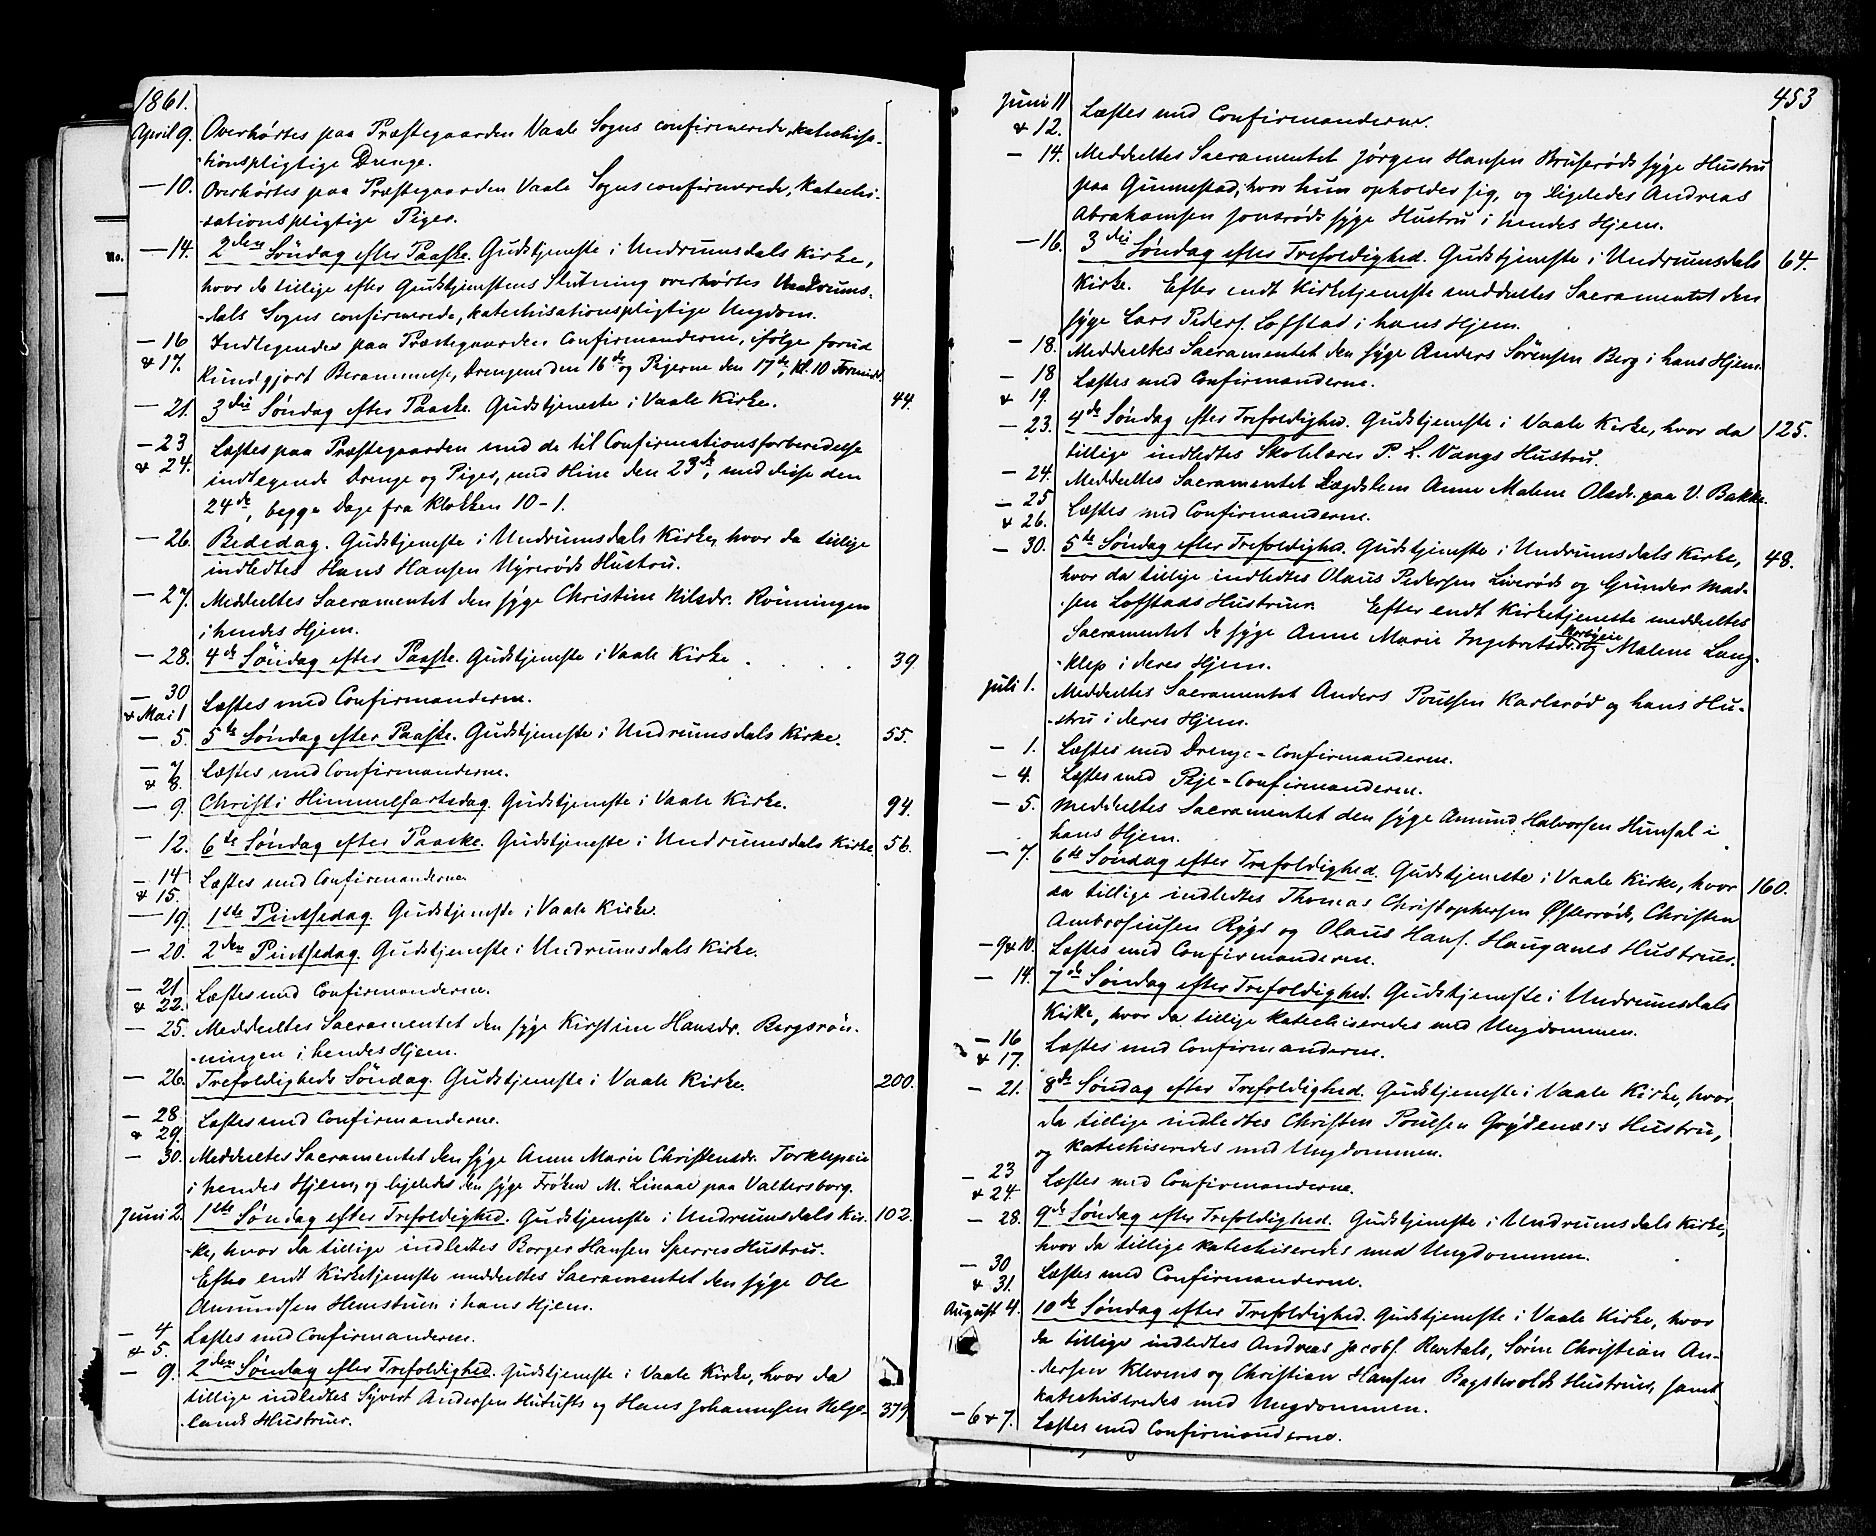 1861.
April 9. Overhørtes paa Præstegaarden Vaale Sogns confirmerede, katechisa-
-tionspligtige Drenge.
— 10. Overhørtes paa Præstegaarden Vaale Sogns confirmerede, katechi-
-sationspligtige Piger.
— 14. 2den Søndag efter Paaske. Gudstjeneste i Undrumsdals Kirke,
hvor da tillige efter Gudstjenestens Slutning overhørtes Undrums-
-dals Sogns confirmerede, katechisationspligtige Ungdom.
— 16 Indtegnedes paa Præstegaarden Confirmanderne, ifølge forud
& 17. kundgjort Berammelse, Drengene den 16de og Pigerne den 17de, Kl. 10 Formidd.
— 21. 3die Søndag efter Paaske. Gudstjeneste i Vaale Kirke. 44.
— 23 Læstes paa Præstegaarden med de til Confirmationsforberedelse
& 24. indtegnede Drenge og Piger, med Hine den 23de, med disse den
24de, begge Dage fra Klokken 10-1.
— 26. Bededag. Gudstjeneste i Undrumsdals Kirke, hvor da tillige
indledtes Hans Hansen Nyrerøds Hustru.
— 27. Meddeeltes Sacramentet den syge Christine Nilsdr. Rønningen
i hendes Hjem.
— 28. 4de Søndag efter Paaske. Gudstjeneste i Vaale Kirke . . . . 39.
— 30 Læstes med Confirmanderne.
& Mai 1
— 5. 5te Søndag efter Paaske. Gudstjeneste i Undrumsdals Kirke. 55.
— 7 Læstes med Confirmanderne.
& 8.
— 9. Christi Himmelfartsdag. Gudstjeneste i Vaale Kirke. 94.
— 12. 6te Søndag efter Paaske. Gudstjeneste i Undrumsdals Kirke. 56.
— 14 Læstes med Confirmanderne
& 15.
— 19. 1ste Pintsedag. Gudstjeneste i Vaale Kirke.
— 20. 2den Pintsedag. Gudstjeneste i Undrumsdals Kirke.
— 21 Læstes med Confirmanderne.
& 22.
— 25. Meddeeltes Sacramentet den syge Kirstine Hansdr. Bergsrøn-
-ningen i hendes Hjem.
— 26. Trefoldigheds Søndag. Gudstjeneste i Vaale Kirke. 200.
— 28 Læstes med Confirmanderne.
& 29.
— 30. Meddeeltes Sacramentet den syge Anne Marie Christensdr. Torklepeie
i hendes Hjem, og ligeledes den syge Frøken M. Linaae paa Valkersborg.
Juni 2. 1ste Søndag efter Trefoldighed. Gudstjeneste i Undrumsdals Kir- 102.
-ke, hvor da tillige indledtes Borger Hansen Sperres Hustru.
Efter endt Kirketjeneste meddeeltes Sacramentet den syge Ole
Amundsen Hemstuen i hans Hjem.
— 4 Læstes med Confirmanderne.
& 5.
— 9. 2den Søndag efter Trefoldighed. Gudstjeneste i Vaale Kirke, hvor da
tillige indledtes Syvert Andersen Hutufts og Hans Johannesen Helge- 379
-lands Hustruer.
453
Juni 11 Læstes med Confirmanderne.
& 12.
— 14. Meddeeltes Sacramentet Jørgen Hansen Bruserøds syge Hustru
paa Gunnestad, hvor hun opholder sig, og ligeledes Andreas
Abrahamsen Jonsrøds syge Hustru i hendes Hjem.
— 16. 3die Søndag efter Trefoldighed. Gudstjeneste i Undrumsdals 64.
Kirke. Efter endt Kirketjeneste meddeeltes Sacramentet den
syge Lars Peders. Lofstad i hans Hjem.
— 18. Meddeeltes Sacramentet den syge Anders Sørensen Berg i hans Hjem.
— 18 Læstes med Confirmanderne.
& 19.
— 23. 4de Søndag efter Trefoldighed. Gudstjeneste i Vaale Kirke, hvor da 125.
tillige indledtes Skolelærer P. L. Vangs Hustru.
— 24. Meddeeltes Sacramentet Lægdslem Anne Malene Olsdr. paa V. Bakke.
— 25 Læstes med Confirmanderne.
& 26.
— 30. 5te Søndag efter Trefoldighed. Gudstjeneste i Undrumsdals Kirke, 48.
hvor da tillige indledtes Olaus Pedersen Liverøds og Gunder Mad-
-sen Lofstads Hustruer. Efter endt Kirketjeneste meddeeltes
Sacramentet de syge Anne Marie Ingebretsdr. og Malene Lang-
-klep i deres Hjem.
Juli 1. Meddeeltes Sacramentet Anders Poulsen Karlsrød og hans Hu-
-stru i deres Hjem.
— 1. Læstes med Drenge-Confirmanderne.
— 4. Læstes med Pige-Confirmanderne.
— 5. Meddeeltes Sacramentet den syge Amund Halvorsen Hunsal i
hans Hjem.
— 7. 6te Søndag efter Trefoldighed. Gudstjeneste i Vaale Kirke, hvor 160.
da tillige indledtes Thomas Christophersen Østerøds, Christen
Ambrosiusen Rygs og Olaus Hans. Hauganes Hustruer.
— 9 & 10. Læstes med Confirmanderne.
— 14. 7de Søndag efter Trefoldighed. Gudstjeneste i Undrumsdals
Kirke, hvor da tillige katechiseredes med Ungdommen.
— 16 Læstes med Confirmanderne.
& 17.
— 21. 8de Søndag efter Trefoldighed. Gudstjeneste i Vaale Kirke, hvor
da tillige indledtes Christen Poulsen Hustru,
og katechiseredes med Ungdommen.
— 23 Læstes med Confirmanderne.
& 24.
— 28. 9de Søndag efter Trefoldighed. Gudstjeneste i Undrumsdals Kirke,
hvor da tillige katechiseredes med Ungdommen.
— 30 Læstes med Confirmanderne.
& 31.
August 4. 10de Søndag efter Trefoldighed. Gudstjeneste i Vaale Kirke, hvor
da tillige indledtes Andreas Jacobs. Revetals, Søren Christian An-
-dersen Klevens og Christian Hansen Bagstevolds Hustruer, samt
katechiseredes med Ungdommen.
— 6 & 7. Læstes med Confirmanderne.
No.